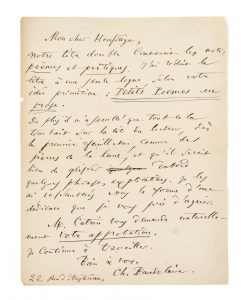 Mon cher Houssaye,
Notre titre double
poèmes et
titre à une seule ligne selon votre
idée primitive : Petits Poèmes en
prose.
De plus, il m'a semblé que tout cela
tombait sur la tête du lecteur, dès
le premier feuilleton, comme des
pierres de la lune, et qu'il serait
bon de glisser d'abord
quelques phrases explicatives. Je les
ai sous la forme d'une
dédicace que je vous prie d'agréer.
M. Catain vous demande naturelle-
ment votre approbation.
Je continue à travailler.
Bien à vous.
Ch. Baudelaire.
22. rue d'Amsterdam.